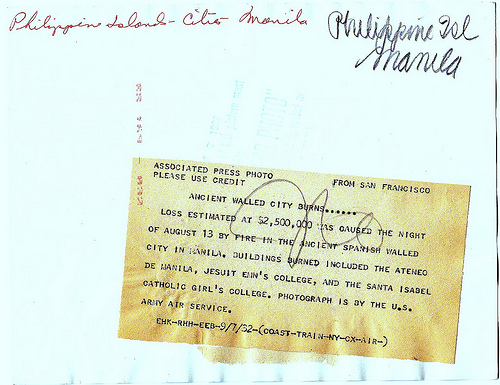 Philippine Islands - Cities Manila
Philippine Isl
Manila
ASSOCIATED PRESS PHOTO
PLEASE USE CREDIT FROM SAN FRANCISCO
ANCIENT WALLED CITY BURNS......
LOSS ESTIMATED AT $2,500,000 WAS CAUSED THE NIGHT
OF AUGUST 13 BY FIRE IN THE ANCIENT SPANISH WALLED
CITY IN MANILA. BUILDINGS BURNED INCLUDED THE ATENEO
DE MANILA, JESUIT EMN'S COLLEGE, AND THE SANTA ISABEL
CATHOLIC GIRL'S COLLEGE. PHOTOGRAPH IS BY THE U.S.
ARMY AIR SERVICE.
EHK-RHH-EEB-9/7/32-(COAST-TRAIN-NY-CX-AIR-)